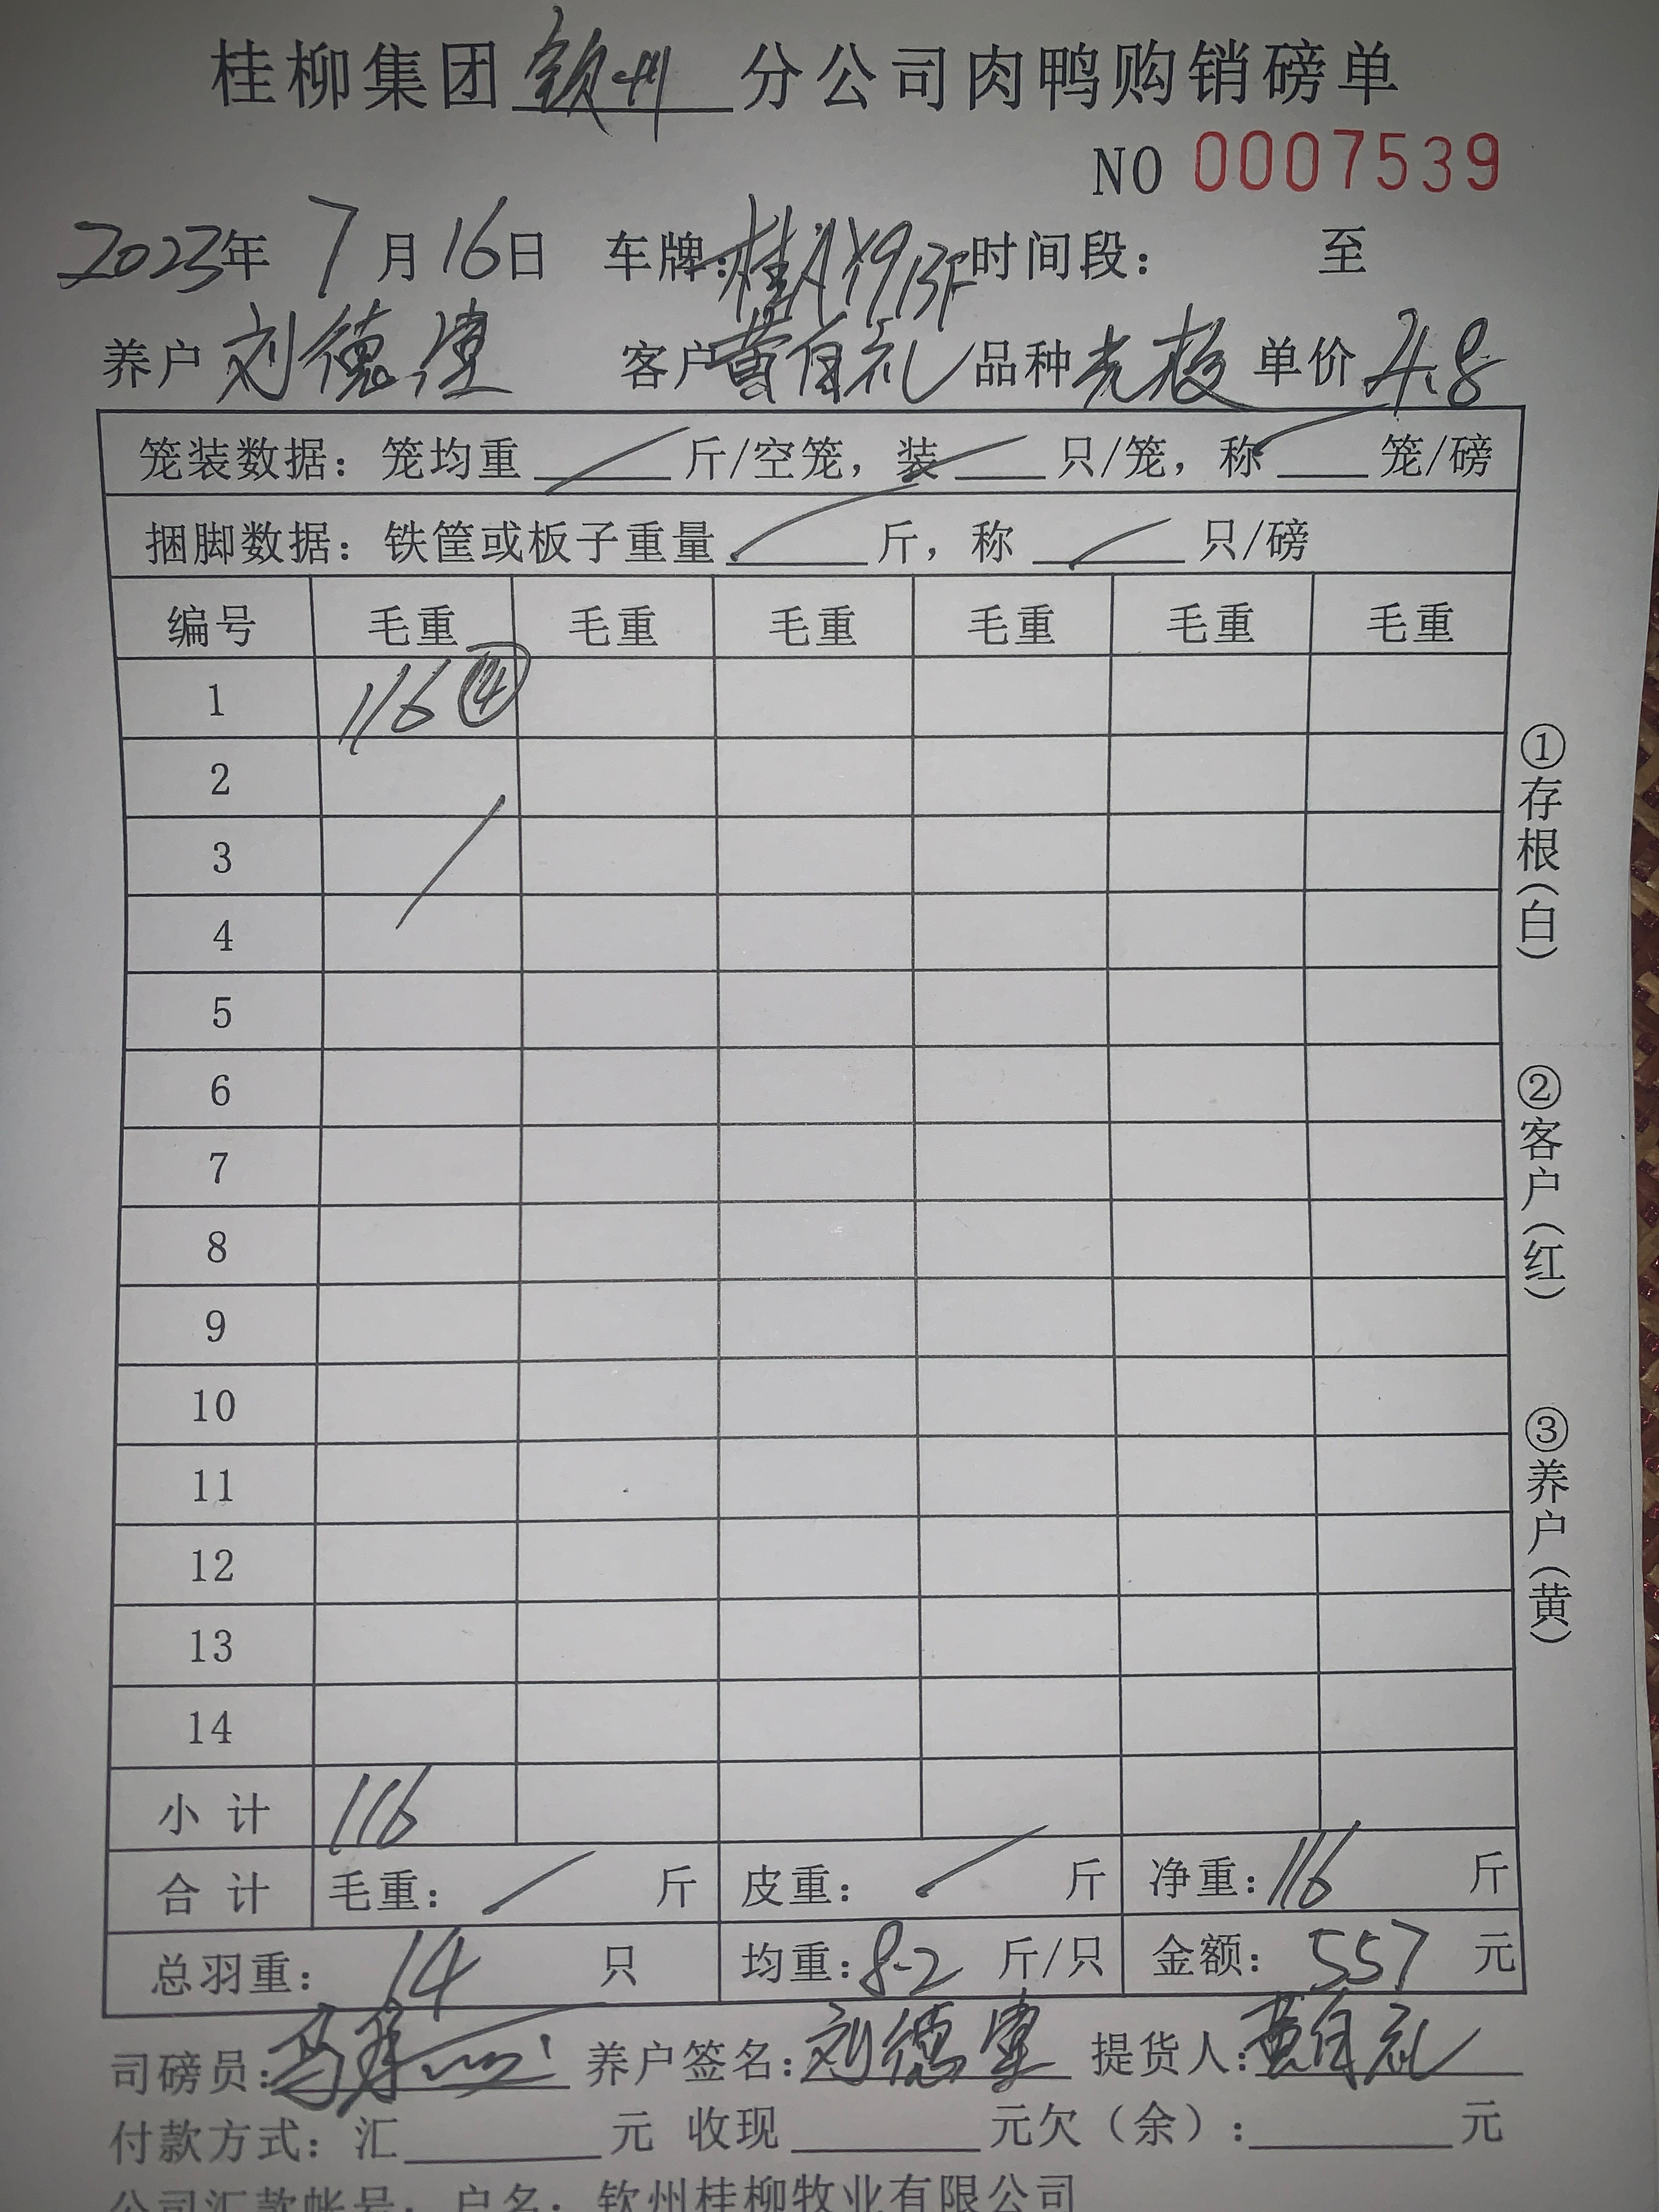 桂柳集团钦州分公司肉鸭购销磅单
NO 0007539
2023年 7月16日 车牌:桂AY913F 时间段: 至
养户 刘德 客户 黄自礼 品种 单价 4.8
笼装数据: 笼均重 斤/空笼, 装 只/笼, 称 笼/磅
捆脚数据: 铁筐或板子重量 斤, 称 只/磅
编号 毛重 毛重 毛重 毛重 毛重 毛重
1 116 ⑭
2
3
4
5
6
7
8
9
10
11
12
13
14
小计 116
合计 毛重: 斤 皮重: 斤 净重: 116 斤
总羽重: 14 只 均重: 8.2 斤/只 金额: 557 元
司磅员: 养户签名: 刘德 提货人: 黄自礼
付款方式: 汇 元 收现 元欠(余): 元
公司汇款帐号: 户名: 钦州桂柳牧业有限公司
①存根(白)
②客户(红)
③养户(黄)